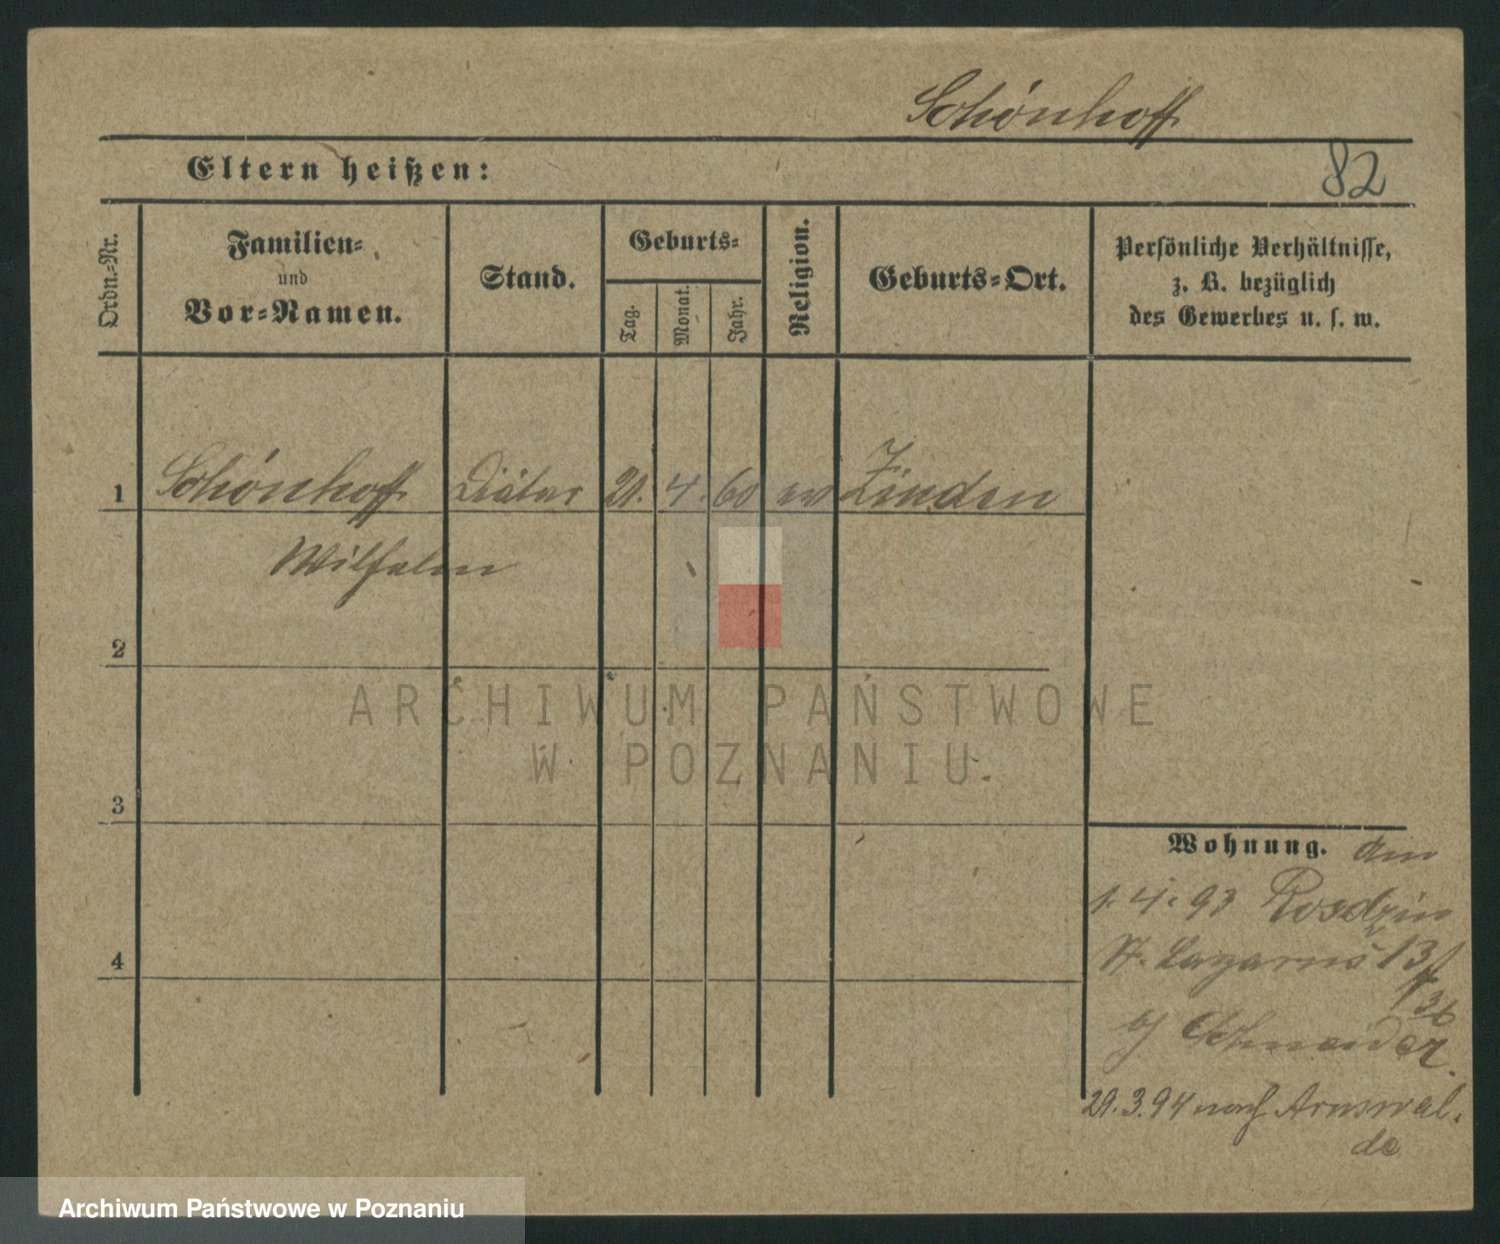 Schönhoff
82
Eltern heißen:
Ordn.-Nr.
Familien-
und
Vor-Namen.
Stand.
Geburts-
Tag.
Monat.
Jahr.
Religion.
Geburts-Ort.
Persönliche Verhältnisse,
z. B. bezüglich
des Gewerbes u. s. w.
1 Schönhoff Diätar 21. 4. 60 ev Linden
Wilhelm
2
3
4
Wohnung. Am
1. 4. 93 Rosdzin
St. Lazarus 13/
36
Schneider.
29. 3. 94 nach Arnswal-
de
ARCHIWUM PAŃSTWOWE
W POZNANIU
Archiwum Państwowe w Poznaniu